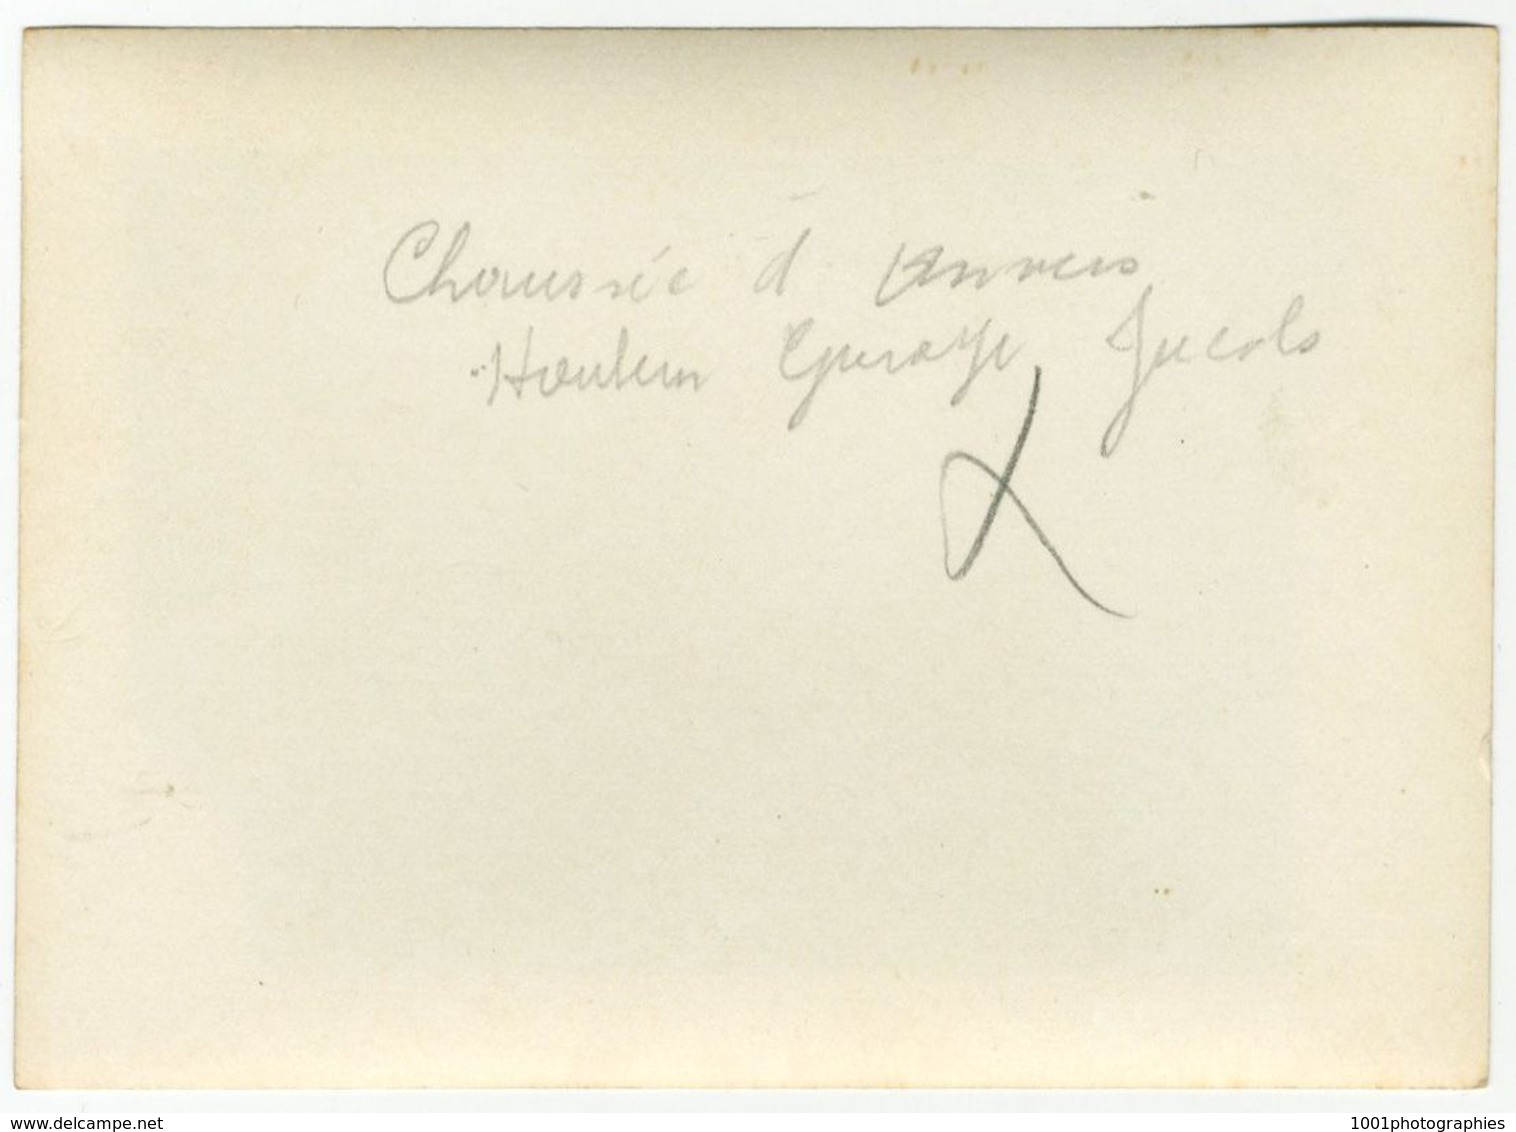 Chaussée d'Anvers
Houtem Garage Jacobs
delcampe.net
1001photographies